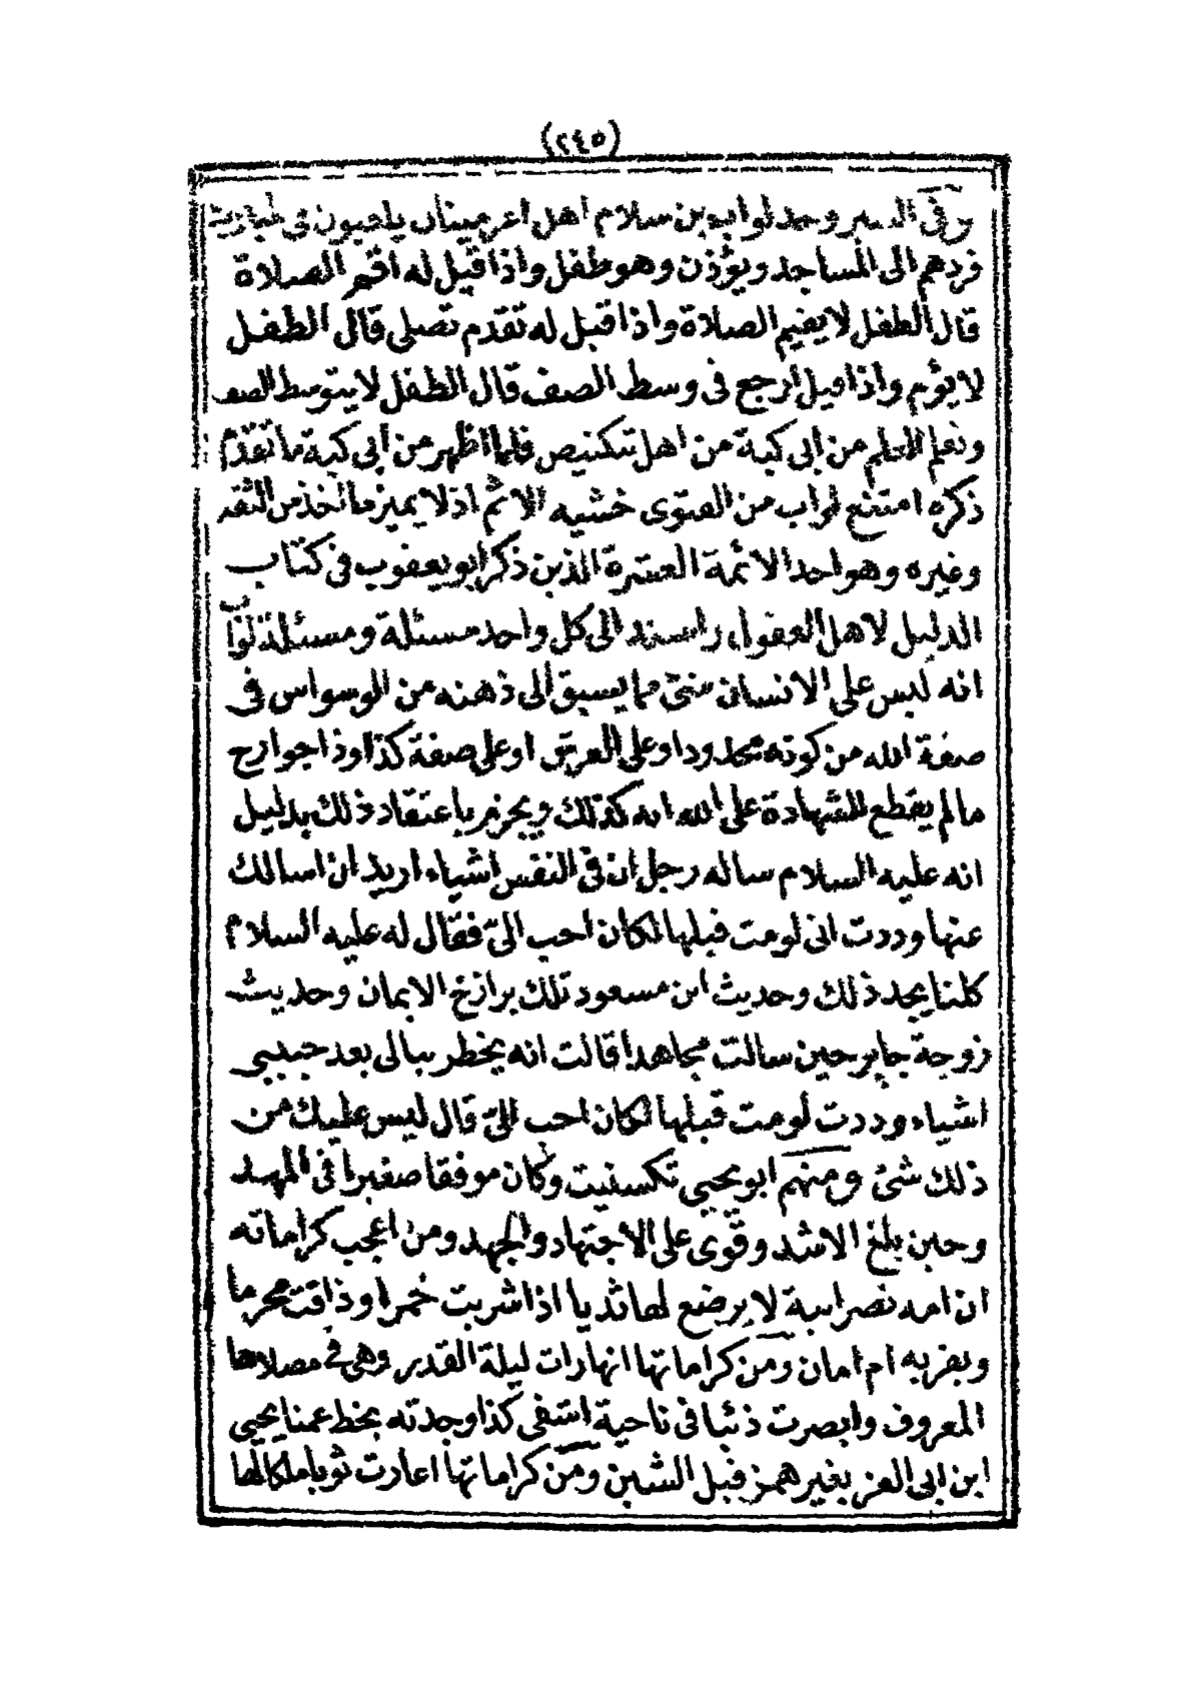 (٢٤٥)
وفى السير وجد لواب بن سلام اهل اغرميمنان يلعبون فى
فردهم الى المساجد ويؤذن وهو طفل واذا قيل له اقم الصلاة
قال الطفل لا يقيم الصلاة واذا قيل له تقدم تصلى قال الطفل
لا يؤم واذا قيل ارجع فى وسط الصف قال الطفل لا يتوسط الصف
وتعلم العلم من ابى كبة من اهل تتكنيص فلما اظهر من ابى كبة ما تقدم
ذكره امتنع لواب من الفتوى خشيه الاثم اذ لا يميز ما اخذ من الثقة
وغيره وهو احد الائمة العشرة الذين ذكر ابو يعقوب فى كتاب
الدليل لاهل العقول واسند الى كل واحد مسئلة ومسئلة لواب
انه ليس على الانسان شئ مما يسبق الى ذهنه من الوسواس فى
صفة الله من كونه محدودا وعلى العرش او على صفة كذا وذا جوارح
ما لم يقطع للشهادة على الله انه كذلك ويجزم باعتقاد ذلك بدليل
انه عليه السلام ساله رجل ان فى النفس اشياء اريد ان اسالك
عنها وددت انى لو مت قبلها لكان احب الىّ فقال له عليه السلام
كلنا يجد ذلك وحديث ابن مسعود تلك برازخ الايمان وحديث
زوجة جابر حين سالت مجاهدا قالت انه يخطر ببالى بعد حبيبى
اشياء وددت لو مت قبلها لكان احب الىّ قال ليس عليك من
ذلك شئ ومنهم ابو يحيى تكسنيت وكان موفقا صغيرا فى المهد
وحين بلغ الاشد وقوى على الاجتهاد والجهد ومن اعجب كراماته
ان امه نصرانية لا يرضع لها ثديا اذا شربت خمرا وذاقت محرما
وبقربه ام امان ومن كراماتها انها رات ليلة القدر وهى فى مصلاها
المعروف وابصرت ذئبا فى ناحية اشفى كذا وجدته بخط عمنا يحيى
ابن ابى العز بغير همز قبل الشين ومن كراماتها اعارت ثوبا ملكا لها